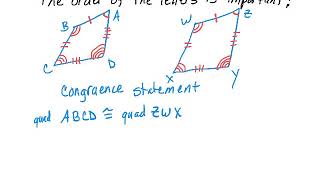 The order of the letters is important,
B A
C D
W Z
X Y
Congruence statement
quad ABCD ≅ quad ZWX